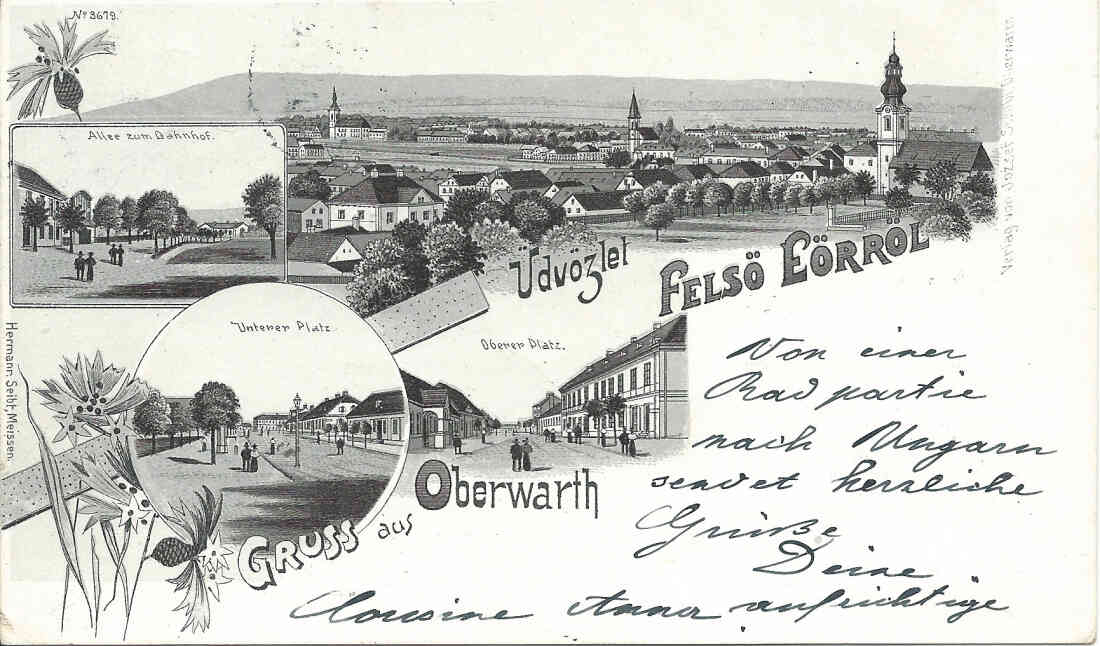 Nº 3679.
Allee zum Bahnhof.
Üdvözlet
FELSÖ EÖRRÖL
Unterer Platz.
Oberer Platz.
Oberwarth
GRUSS aus
Hermann Seibt, Meissen.
Von einer
Radpartie
nach Ungarn
sendet herzliche
Grüße
Deine
Cousine Anna aufrichtige